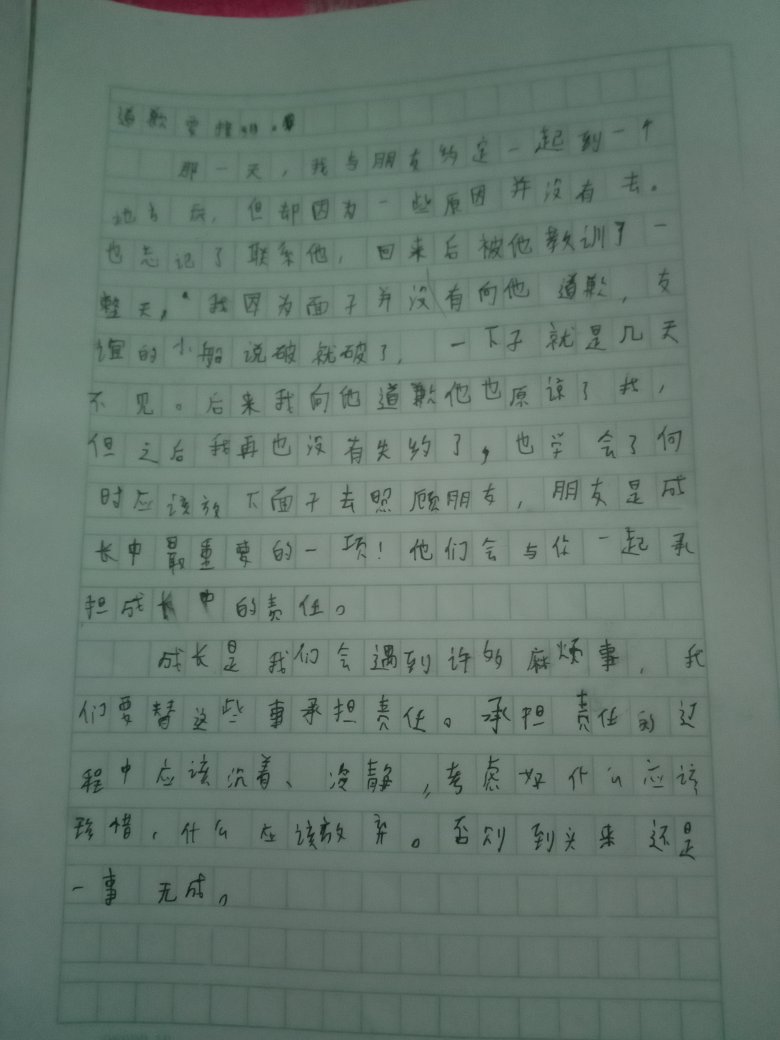 道歉要
那一天，我与朋友约定一起到一个
地方后，但却因为一些原因并没有去。
也忘记了联系他，回来后被他教训了一
整天，我因为面子并没有向他道歉，友
谊的小船说破就破了，一下子就是几天
不见。后来我向他道歉他也原谅了我，
但之后我再也没有失约了，也学会了何
时应该放下面子去照顾朋友，朋友是成
长中最重要的一项！他们会与你一起承
担成长中的责任。
成长是我们会遇到许多麻烦事，我
们要替这些事承担责任。承担责任的过
程中应该沉着、冷静，考虑好什么应该
珍惜，什么应该放弃。否则到头来还是
一事无成。